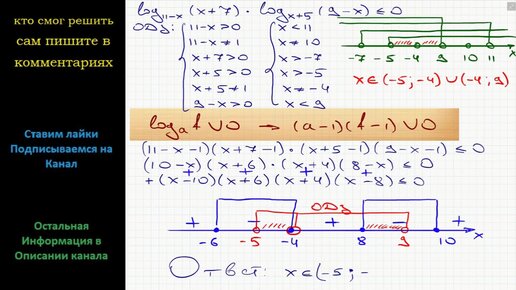 кто смог решить
сам пишите в
комментариях
Ставим лайки
Подписываемся на
Канал
Остальная
Информация в
Описании канала
log₁₁₋ₓ (x+7) · logₓ₊₅ (9-x) ≤ 0
ОДЗ: { 11-x>0 { x<11
11-x≠1 x≠10
x+7>0 x>-7
x+5>0 x>-5
x+5≠1 x≠-4
9-x>0 x<9
-7 -5 -4 9 10 11 x
x∈(-5;-4)∪(-4;9)
logₐ f ∨ 0 → (a-1)(f-1) ∨ 0
(11-x-1)(x+7-1)·(x+5-1)(9-x-1) ≤ 0
(10-x)(x+6)·(x+4)(8-x) ≤ 0
+(x-10)(x+6)(x+4)(x-8) ≤ 0
+ + + +
ОДЗ
+ - + - +
-6 -5 -4 8 9 10 x
Ответ: x∈(-5; -